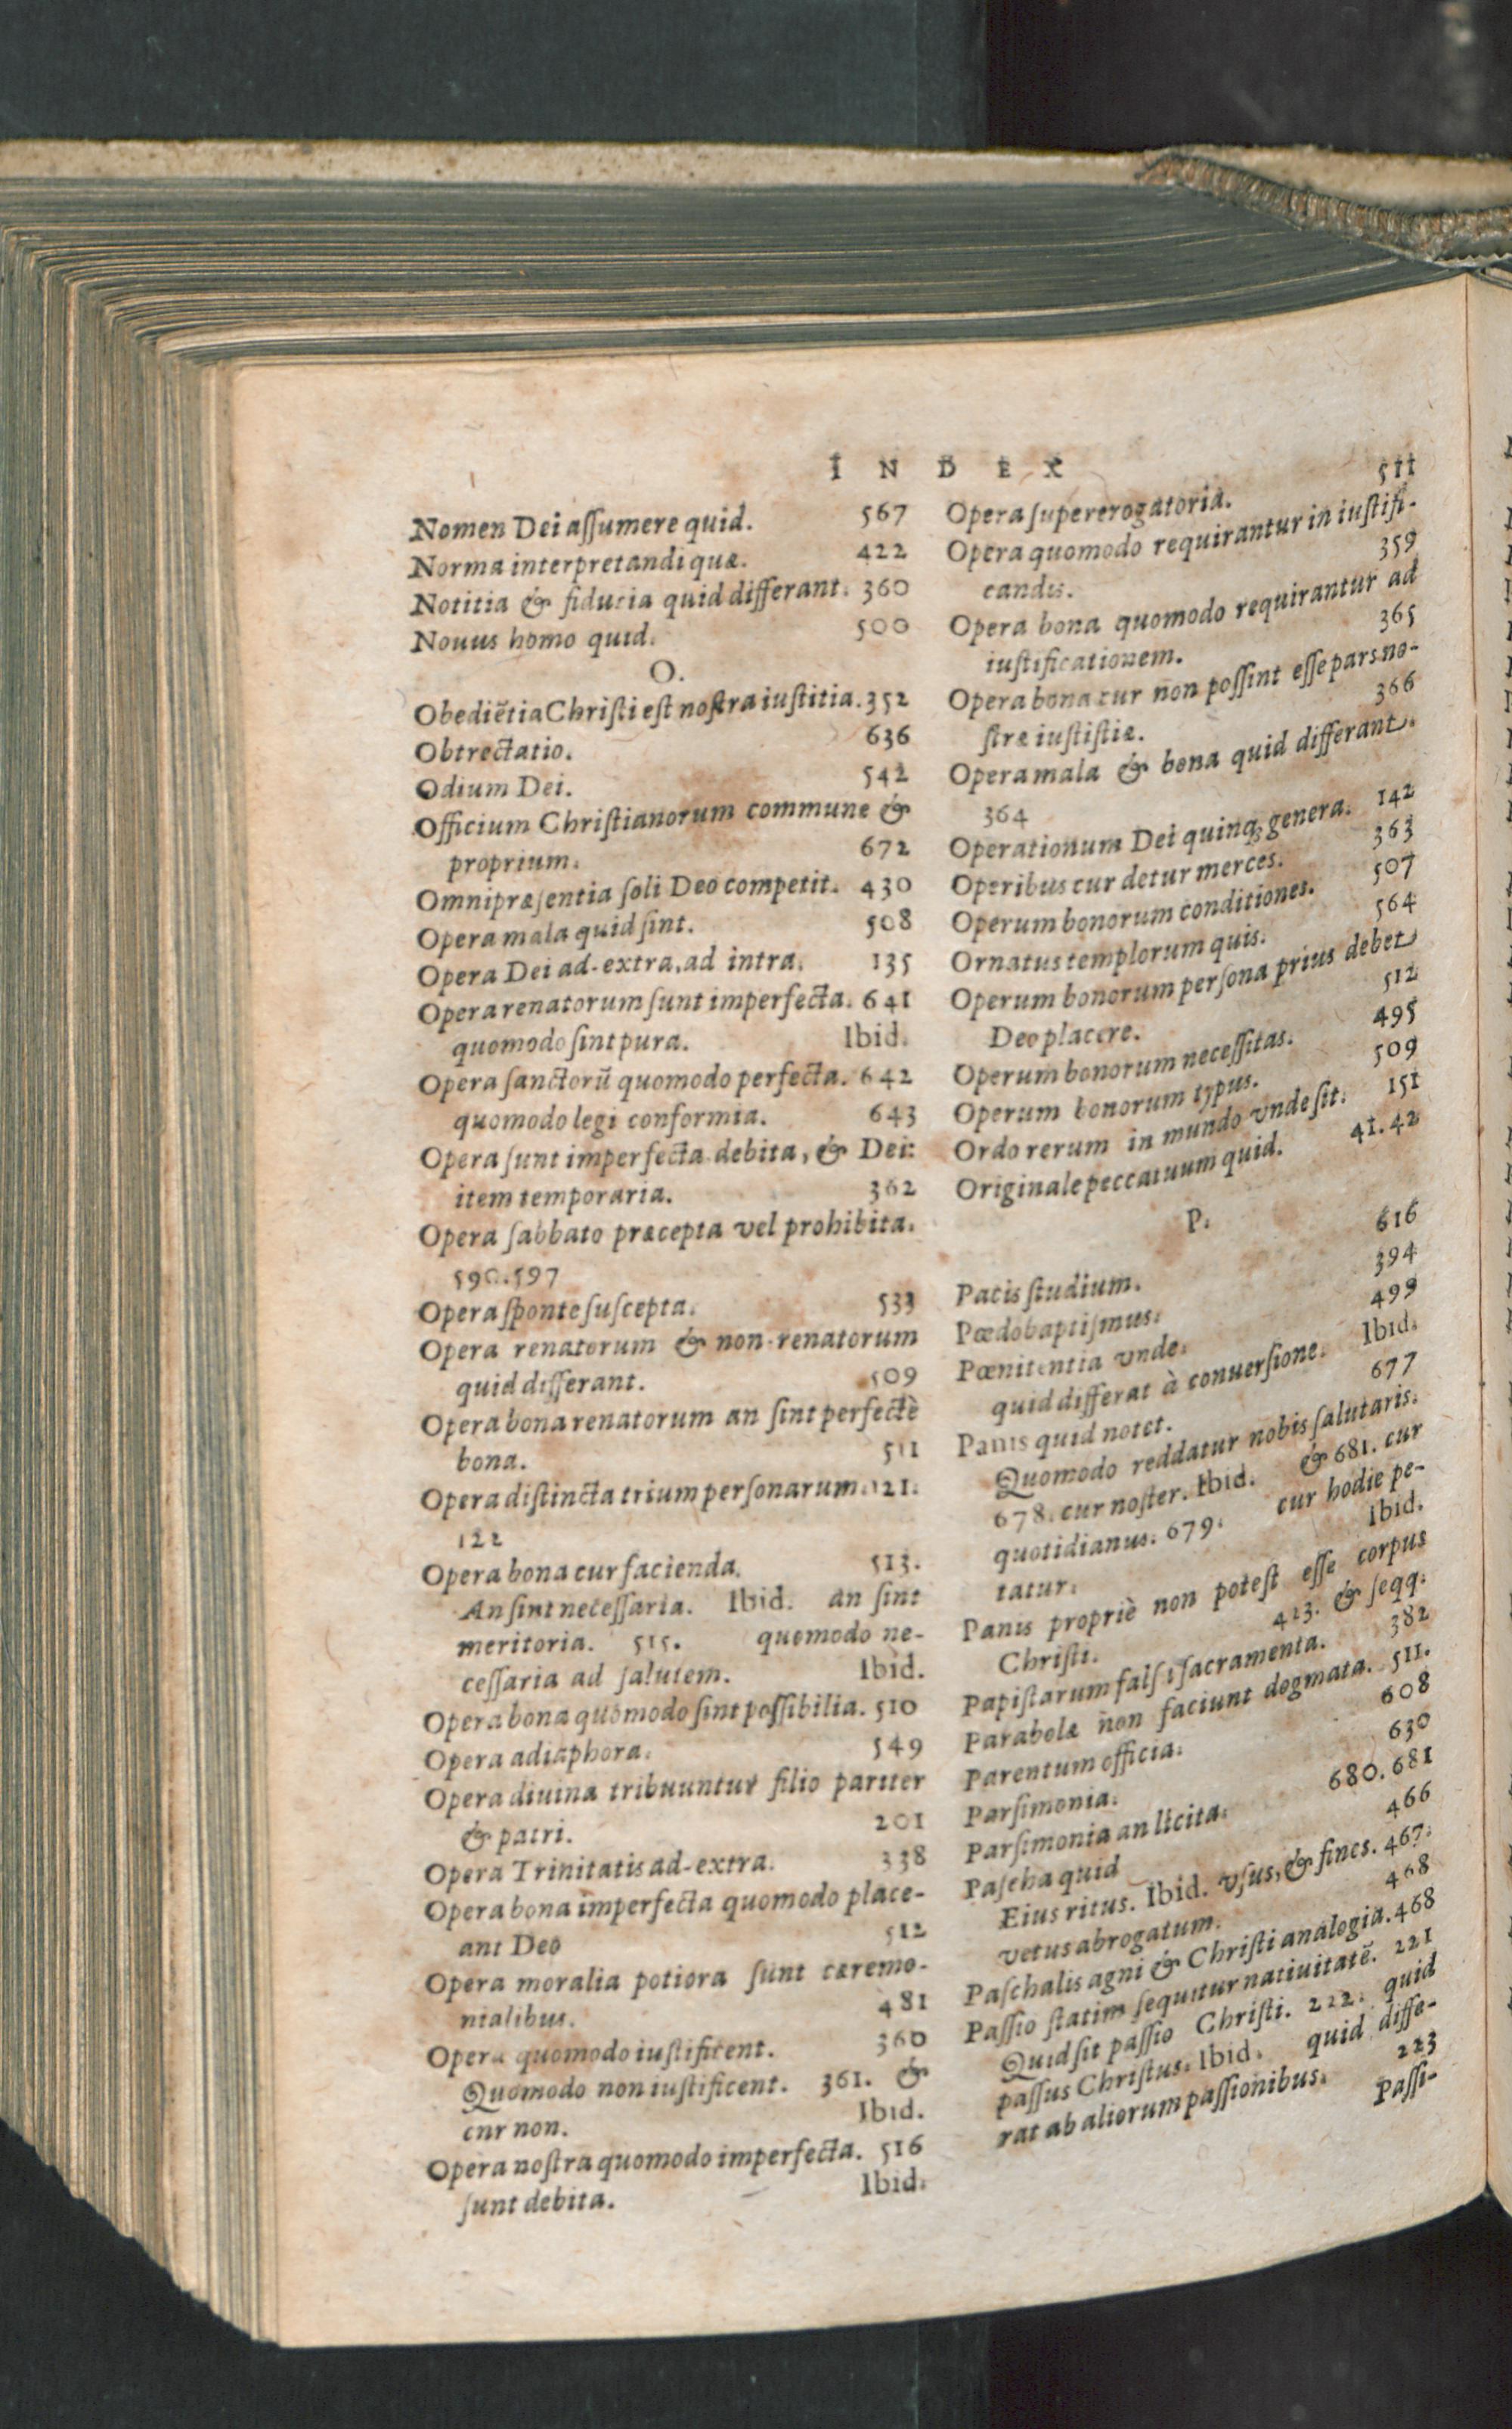 INDEX
Nomen Dei aſſumere quid. 567
Norma interpretandi quæ. 422
Notitia & fiducia quid differant. 360
Nouus homo quid. 500
O.
Obediẽtia Chriſti eſt noſtra iuſtitia. 352
Obtrectatio. 636
Odium Dei. 542
Officium Chriſtianorum commune &
proprium. 672
Omnipræſentia ſoli Deo competit. 430
Opera mala quid ſint. 508
Opera Dei ad-extra, ad intra. 135
Opera renatorum ſunt imperfecta. 641
quomodo ſint pura. Ibid.
Opera ſanctorũ quomodo perfecta. 642
quomodo legi conformia. 643
Opera ſunt imperfecta debita, & Dei:
item temporaria. 362
Opera ſabbato præcepta vel prohibita.
590. 597
Opera ſponte ſuſcepta. 533
Opera renatorum & non-renatorum
quid differant. 509
Opera bona renatorum an ſint perfectè
bona. 511
Opera diſtincta trium perſonarum. 121.
122
Opera bona cur facienda. 513.
An ſint neceſſaria. Ibid. an ſint
meritoria. 515. quomodo ne-
ceſſaria ad ſalutem. Ibid.
Opera bona quomodo ſint poſſibilia. 510
Opera adiaphora. 549
Opera diuina tribuuntur filio pariter
& patri. 201
Opera Trinitatis ad-extra. 338
Opera bona imperfecta quomodo place-
ant Deo 512
Opera moralia potiora ſunt cæremo-
nialibus. 481
Opera quomodo iuſtificent. 360
Quomodo non iuſtificent. 361. &
cnr non. Ibid.
Opera noſtra quomodo imperfecta. 516
ſunt debita. Ibid.
Opera ſupererogatoria. 511
Opera quomodo requirantur in iuſtifi-
candis. 359
Opera bona quomodo requirantur ad
iuſtificationem. 365
Opera bona cur non poſſint eſſe pars no-
ſtræ iuſtiſtiæ. 366
Opera mala & bona quid differant.
364
Operationum Dei quinq; genera. 142
Operibus cur detur merces. 363
Operum bonorum conditiones. 507
Ornatus templorum quis. 564
Operum bonorum perſona prius debet
Deo placere. 512
Operum bonorum neceſſitas. 495
Operum bonorum typus. 509
Ordo rerum in mundo vnde ſit. 151
Originale peccatuum quid. 41. 42
P.
Pacis ſtudium. 616
Pœdobaptiſmus. 394
Pœnitentia vnde. 499
quid differat à conuerſione. Ibid.
Panis quid notet. 677
Quomodo reddatur nobis ſalutaris.
678. cur noſter. Ibid. & 681. cur
quotidianus. 679. cur hodie pe-
tatur. Ibid.
Panis propriè non poteſt eſſe corpus
Chriſti. 413. & ſeqq.
Papiſtarum falſi ſacramenta. 382
Parabolæ non faciunt dogmata. 511.
Parentum officia. 608
Parſimonia. 630
Parſimonia an licita. 680. 681
Paſcha quid 466
Eius ritus. Ibid. vſus, & fines. 467.
vetus abrogatum. 468
Paſchalis agni & Chriſti analogia. 468
Paſſio ſtatim ſequitur natiuitatẽ. 221
Quid ſit paſſio Chriſti. 222. quid
paſſus Chriſtus. Ibid. quid diffe-
rat ab aliorum paſſionibus. 223
Paſſi-